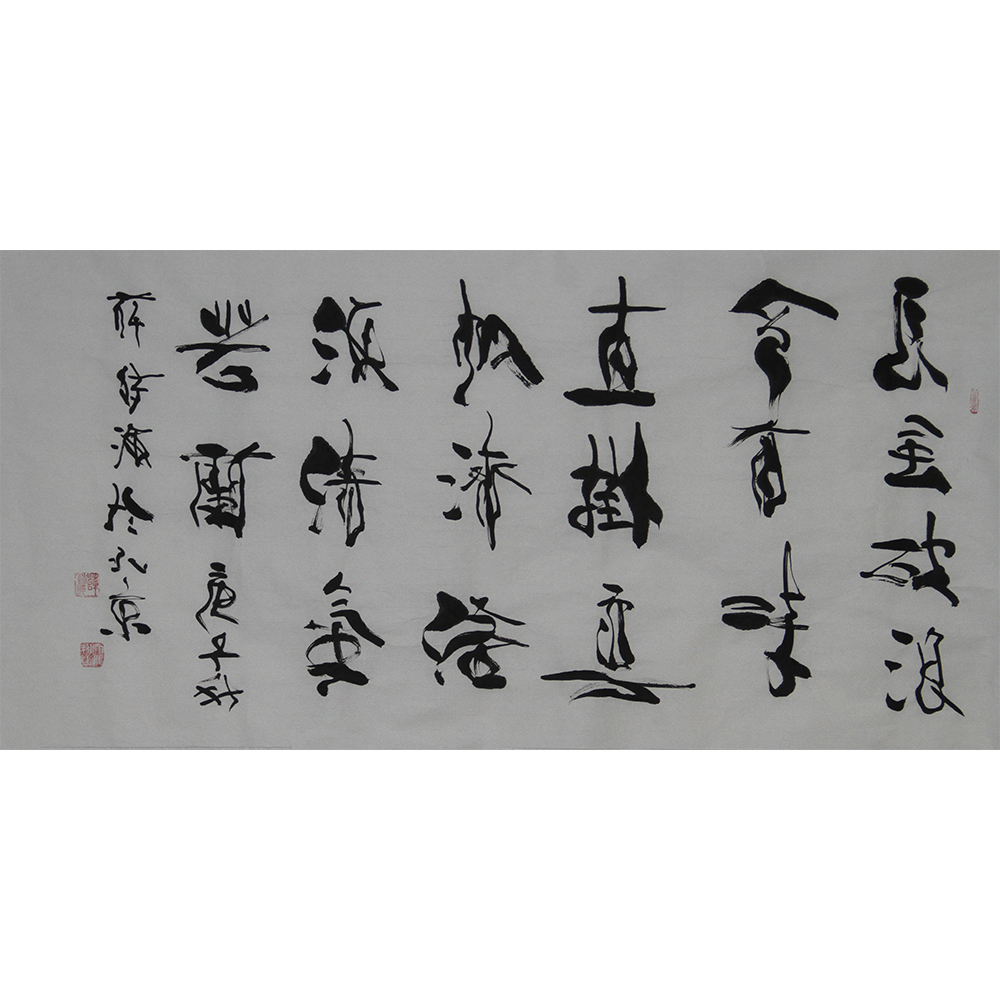 長風破浪
會有時
直掛雲
帆濟滄
海清氣
若蘭庚子秋
薛海於北京